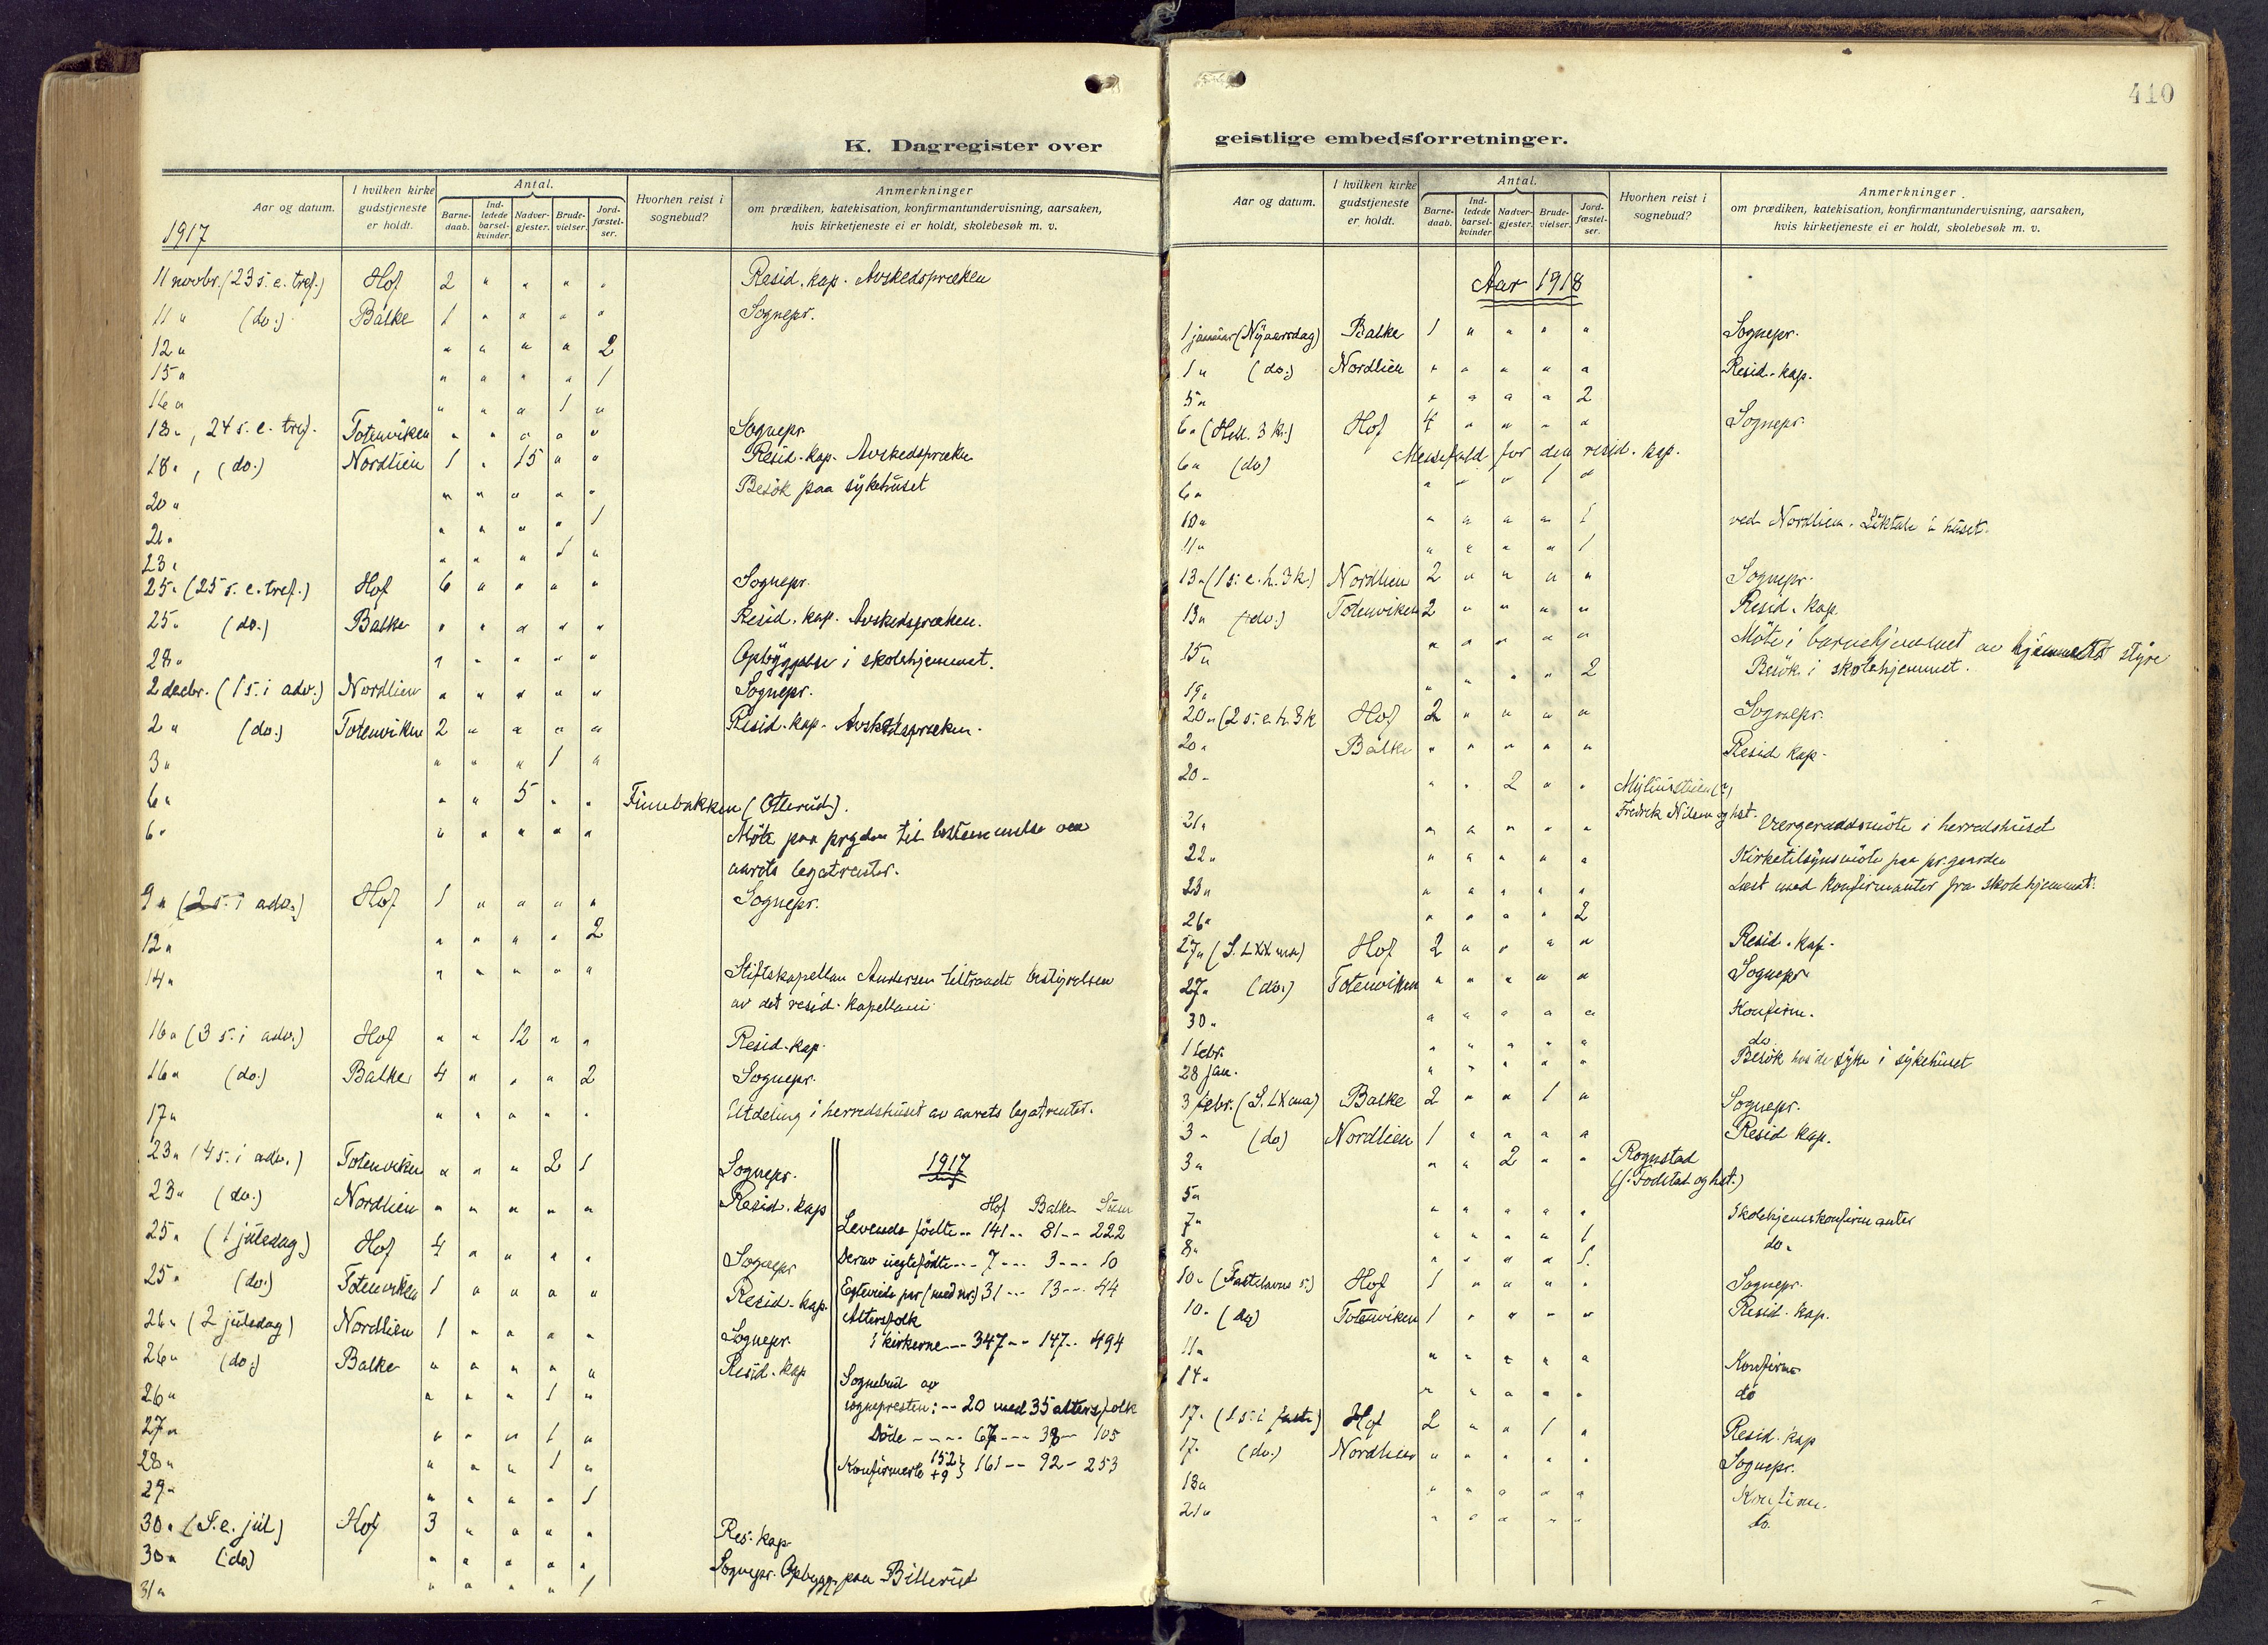 K. Dagregister over
Aar og datum.
I hvilken kirke gudstjeneste er holdt.
Antal.
Barnedaab.
Indledede barselkvinder.
Nadvergjester.
Brudevielser.
Jordfæstelser.
Hvorhen reist i sognebud?
Anmerkninger
om prædiken, katekisation, konfirmantundervisning, aarsaken,
hvis kirketjeneste ei er holdt, skolebesøk m. v.
1917
11 novbr. (23 s. e. tref.) Hof 2 " " " " Resid. kap. Avskedspræken
11 " (do.) Balke 1 " " " " Sognepr.
12 " " " " " 2
15 " " " " " 1
16 " " " " 1 "
18 ", 24 s. e. tref. Totenviken " " " " " Sognepr
18 ", (do.) Nordlien 1 " 15 " " Resid. kap. Avskedspræken
20 " " " " " " Besök paa sykehuset
21 " " " " " 1
23 " " " " 1 "
25 " (25 s. e. tref.) Hof 6 " " " " Sognepr.
25 " (do.) Balke " " " " " Resid. kap. Avskedspræken.
28 " " " " " " Opbyggelse i skolehjemmet.
2 decbr. (1 s. i adv.) Nordlien " " " " " Sognepr.
2 " (do.) Totenviken 2 " " " " Resid. kap. Avskedspræken.
3 " " " " 1 "
6 " " " 5 " " Finnebakken (Otterud).
6 " " " " " " Möte paa prgden til bestemmelse om
aarets legatrenter.
9 " (2 s. i adv.) Hof 1 " " " " Sognepr.
12 " " " " " 2
14 " " " " " " Stiftskapellan Andersen tiltraadt bestyrelsen
av det resid. kapellani
16 " (3 s. i adv.) Hof " " 12 " " Resid. kap.
16 " (do.) Balke 4 " " " 2 Sognepr.
17 " " " " " " Utdeling i herredshuset av aarets legatrenter.
23 " (4 s. i adv.) Totenviken " " " 2 1 Sognepr.
23 " (do.) Nordlien " " " " " Resid. kap
25 " (1 juledag) Hof 4 " " " " Sognepr
25 " (do.) Totenviken 1 " " " " Resid. kap.
26 " (2 juledag) Nordlien 1 " " " " Sognepr.
26 " (do.) Balke " " " " " Resid. kap
26 " " " " 1 "
27 " " " " 1 "
28 " " " " 1 "
29 " " " " " 1
30 " (S. e. jul) Hof 3 " " " " Res. kap
30 " (do) " " " " " Sognepr. Opbygg. paa Billerud
31 " " " " " 1
1917
Hof Balke Sum
Levende födte -- 141 -- 81 -- 222
Derav uegtefödte --- 7 --- 3 --- 10
Egteviede par (med nr.) 31 --- 13 --- 44
Altersfolk
i kirkerne -- 347 -- 147 -- 494
Sognebud av
sognepresten: -- 20 med 35 altersfolk
Döde ---- 67 --- 38 -- 105
Konfirmerte 152 + 9 } 161 -- 92 - 253
410
geistlige embedsforretninger.
Aar og datum.
I hvilken kirke gudstjeneste er holdt.
Antal.
Barnedaab.
Indledede barselkvinder
Nadvergjester.
Brudevielser.
Jordfæstelser.
Hvorhen reist i sognebud?
Anmerkninger
om prædiken, katekisation, konfirmantundervisning, aarsaken,
hvis kirketjeneste ei er holdt, skolebesøk m. v.
Aar 1918
1 januar (Nyaarsdag) Balke 1 " " " " Sognepr.
1 " (do.) Nordlien " " " " " Resid. kap.
5 " " " " " 2
6 " (Hell. 3 K.) Hof 4 " " " " Sognepr.
6 " (do) Messefald for den resid. kap.
6 " " " " 1 "
10 " " " " " 1 ved Nordlien. Liktale i huset.
11 " " " " " 1
13 " (1 s. e. h. 3 k.) Nordlien 2 " " " " Sognepr.
13 " (do.) Totenviken 2 " " " " Resid. kap.
15 " " " " " " Möte i barnehjemmet av hjemmets styre
Besök i skolehjemmet.
19 " " " " " 2
20 " (2 s. e. h. 3 k Hof 2 " " " " Sognepr.
20 " Balke " " " " " Resid kap.
20 " " " 2 " "
Fredrik Nilsen og hst.
21 " " " " " " Vergeraadsmöte i herredshuset
22 " " " " " " Kirketilsynsmöte paa pr.gaarden
23 " " " " " " Læst med konfirmanter fra skolehjemmet.
26 " " " " " 2
27 " (S. LXX ma) Hof 2 " " " " Resid. kap.
27 " (do.) Totenviken " " " " " Sognepr
30 " " " " " " Konfirm.
1 febr. " " " " " do
28 jan. " " " " " Besök hos de syke i sykehuset
3 febr. (S. LX ma) Balke 2 " " 1 " Sognepr.
3 " (do) Nordlien 1 " " " " Resid kap.
3 " " " 2 " " Rognstad
5 " " " " " " Skolehjemskonfirmanter
7 " " " " " 1 do.
8 " " " " " 1
10 " (Fastelavns s.) Hof 1 " " " " Sognepr.
10 " (do) Totenviken 1 " " " " Resid. kap.
11 " " " " " " Konfirm
14 " " " " " " do
17 " (1 s. i faste) Hof 2 " " 1 " Resid. kap
17 " (do.) Nordlien " " " " " Sognepr.
18 " " " " " " Konfirm.
21 " " " " " " do.